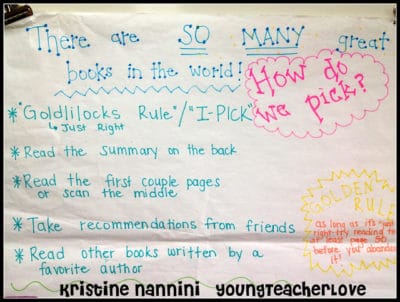 There are SO MANY great
books in the world!
How do
we pick?
* "Goldlilocks Rule"/"I-PICK"
↳ Just Right
* Read the summary on the back
* Read the first couple pages
or scan the middle
* Take recommendations from friends
* Read other books written by a
favorite author
GOLDEN
RULE
as long as it's "just
right-try reading to
at least page 50
before you abandon
it!
Kristine Nannini Youngteacherlove